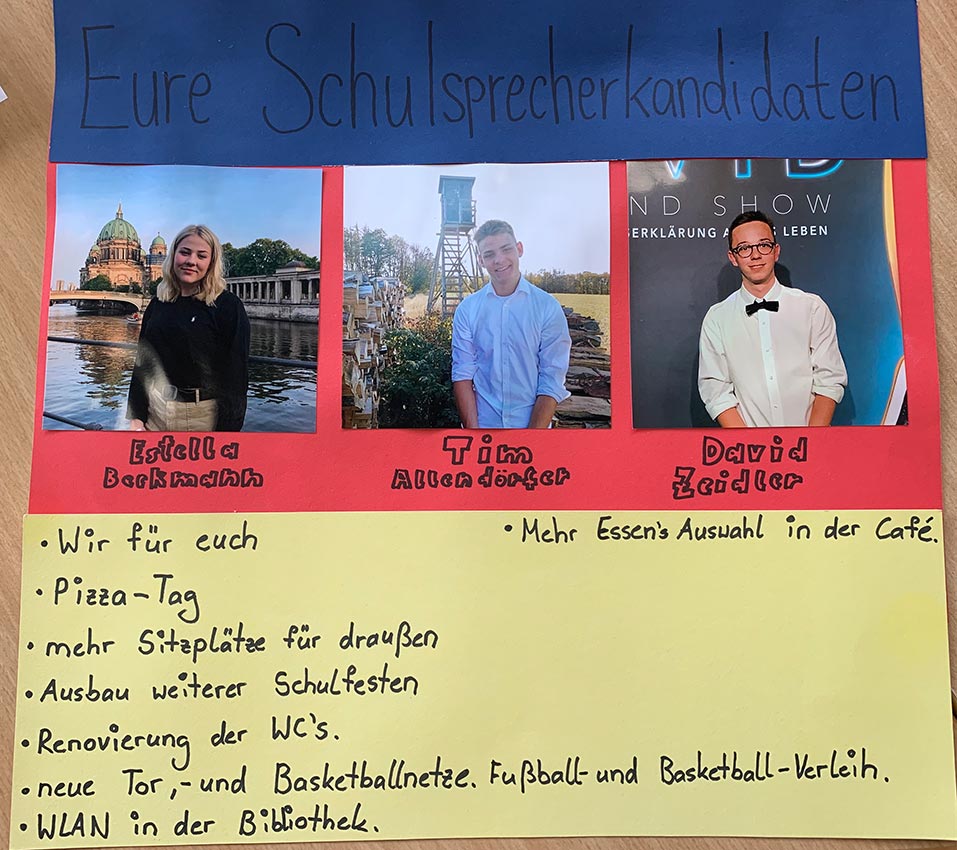 Eure Schulsprecherkandidaten
ND SHOW
SERKLÄRUNG A LEBEN
Estella
Berkmann
Tim
Allendörfer
David
Zeidler
• Wir für euch
• Pizza-Tag
• mehr Sitzplätze für draußen
• Ausbau weiterer Schulfesten
• Renovierung der WC's.
• neue Tor,- und Basketballnetze. Fußball- und Basketball-Verleih.
• WLAN in der Bibliothek.
• Mehr Essen's Auswahl in der Café.